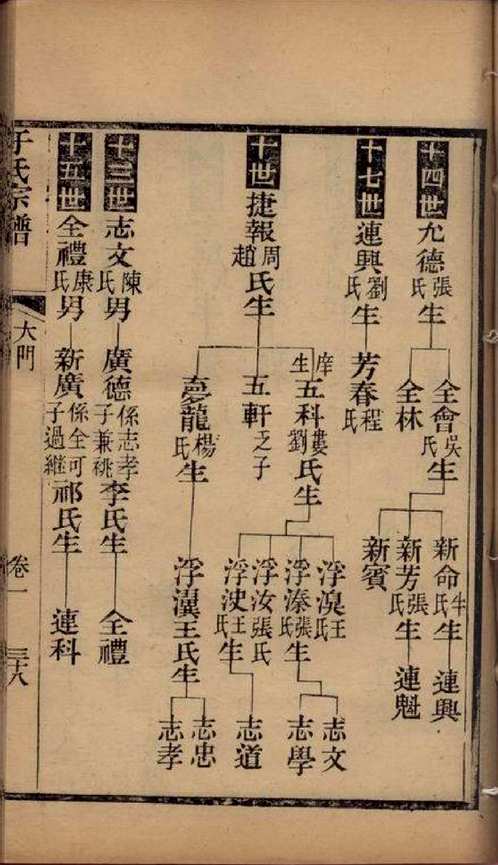 十四世 允德張氏生
全會吳氏生
全林
新命牛氏生
連興
新芳張氏生
連魁
新賓
十七世 連興劉氏生
芳春程氏
十世 捷報周趙氏生
庠生五科婁劉氏生
五軒乏子
夢龍楊氏生
浮湨王氏
浮溱張氏生
浮汝張氏
浮洓王氏生
浮漢王氏生
志文
志學
志道
志忠
志孝
十三世 志文陳氏男
廣德係志孝子兼祧李氏生
全禮
十五世 全禮康氏男
新廣係全可子過繼祁氏生
連科
于氏宗譜
大門
卷一
三十八